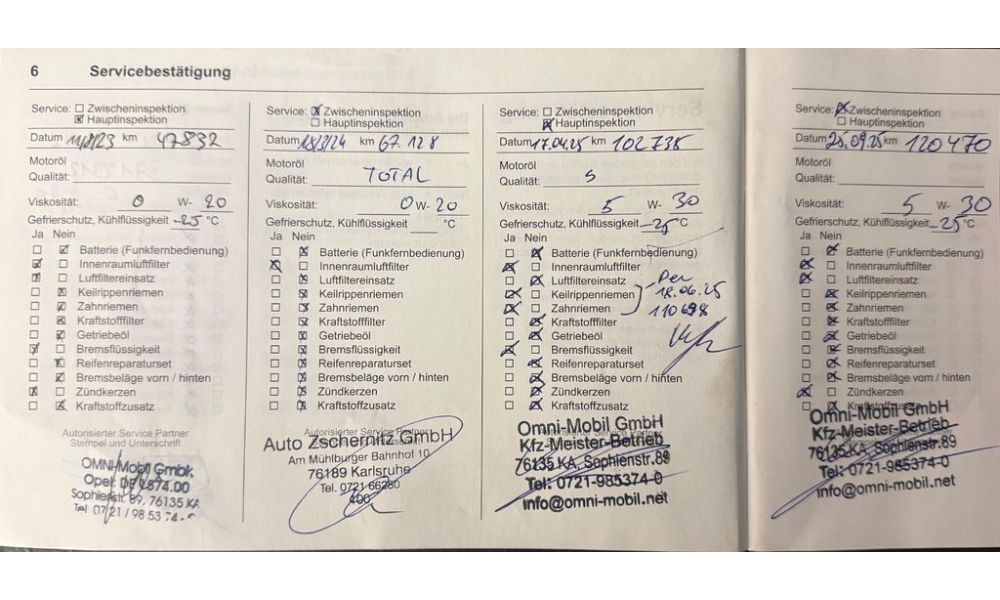 6 Servicebestätigung
Service: ☐ Zwischeninspektion
☒ Hauptinspektion
Datum 11/8/23 km 47832
Motoröl
Qualität:
Viskosität: 0 W- 20
Gefrierschutz, Kühlflüssigkeit -25 °C
Ja Nein
☐ ☒ Batterie (Funkfernbedienung)
☒ ☐ Innenraumluftfilter
☒ ☐ Luftfiltereinsatz
☐ ☒ Keilrippenriemen
☐ ☒ Zahnriemen
☐ ☒ Kraftstofffilter
☐ ☒ Getriebeöl
☒ ☐ Bremsflüssigkeit
☐ ☒ Reifenreparaturset
☐ ☒ Bremsbeläge vorn / hinten
☒ ☐ Zündkerzen
☐ ☒ Kraftstoffzusatz
Autorisierter Service Partner
Stempel und Unterschrift
OMNI-Mobil GmbH
Opel
Sophienstr. 89, 76135 KA
Tel 0721 / 98 53 74 -
Service: ☒ Zwischeninspektion
☐ Hauptinspektion
Datum km 67.128
Motoröl
Qualität: TOTAL
Viskosität: 0 W- 20
Gefrierschutz, Kühlflüssigkeit °C
Ja Nein
☐ ☒ Batterie (Funkfernbedienung)
☒ ☐ Innenraumluftfilter
☐ ☒ Luftfiltereinsatz
☐ ☒ Keilrippenriemen
☐ ☒ Zahnriemen
☐ ☒ Kraftstofffilter
☐ ☒ Getriebeöl
☐ ☒ Bremsflüssigkeit
☐ ☒ Reifenreparaturset
☐ ☒ Bremsbeläge vorn / hinten
☐ ☒ Zündkerzen
☐ ☒ Kraftstoffzusatz
Autorisierter Service Partner
Auto Zschernitz GmbH
Am Mühlburger Bahnhof 10
76189 Karlsruhe
Tel. 0721 66280
400
Service: ☐ Zwischeninspektion
☒ Hauptinspektion
Datum 17.04.25 km 102735
Motoröl
Qualität: 5
Viskosität: 5 W- 30
Gefrierschutz, Kühlflüssigkeit -25 °C
Ja Nein
☐ ☒ Batterie (Funkfernbedienung)
☒ ☐ Innenraumluftfilter
☐ ☒ Luftfiltereinsatz
☒ ☐ Keilrippenriemen
☒ ☐ Zahnriemen
18.06.25
110698
☐ ☒ Kraftstofffilter
☐ ☒ Getriebeöl
☒ ☐ Bremsflüssigkeit
☐ ☒ Reifenreparaturset
☐ ☒ Bremsbeläge vorn / hinten
☐ ☒ Zündkerzen
☐ ☒ Kraftstoffzusatz
Omni-Mobil GmbH
Kfz-Meister-Betrieb
76135 KA, Sophienstr.89
Tel: 0721-985374-0
info@omni-mobil.net
Service: ☒ Zwischeninspektion
☐ Hauptinspektion
Datum 25.09.25 km 120470
Motoröl
Qualität:
Viskosität: 5 W- 30
Gefrierschutz, Kühlflüssigkeit -25 °C
Ja Nein
☐ ☒ Batterie (Funkfernbedienung)
☒ ☐ Innenraumluftfilter
☒ ☐ Luftfiltereinsatz
☐ ☒ Keilrippenriemen
☐ ☒ Zahnriemen
☐ ☒ Kraftstofffilter
☐ ☒ Getriebeöl
☐ ☒ Bremsflüssigkeit
☐ ☒ Reifenreparaturset
☐ ☒ Bremsbeläge vorn / hinten
☒ ☐ Zündkerzen
☐ ☒ Kraftstoffzusatz
Omni-Mobil GmbH
Kfz-Meister-Betrieb
76135 KA, Sophienstr.89
Tel: 0721-985374-0
info@omni-mobil.net